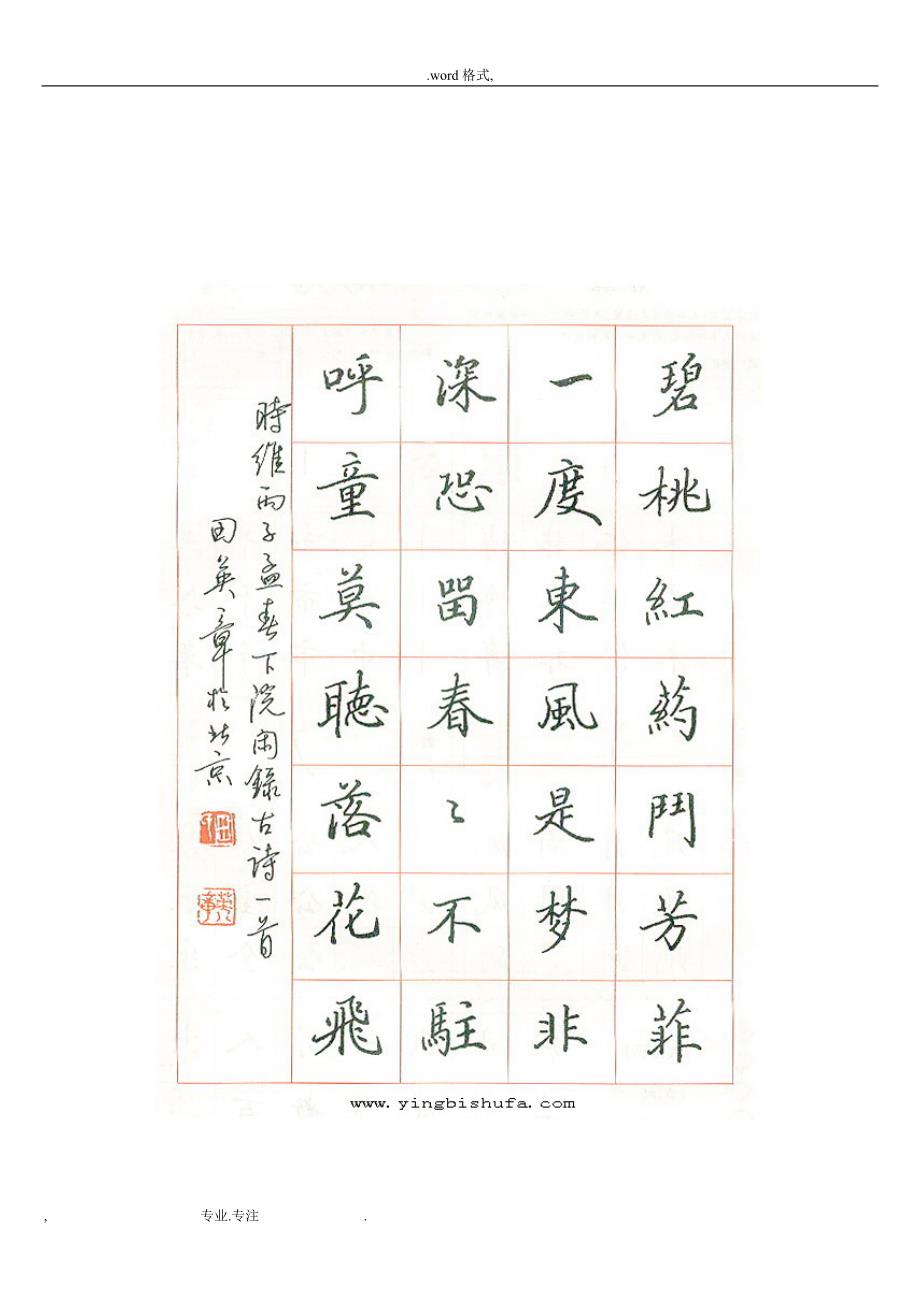 .word 格式,
碧桃紅葯鬥芳菲
一度東風是梦非
深恐畱春〻不駐
呼童莫聽落花飛
時維丙子孟春下院闲錄古詩一首
田英章於北京
www.yingbishufa.com
, 专业.专注 .